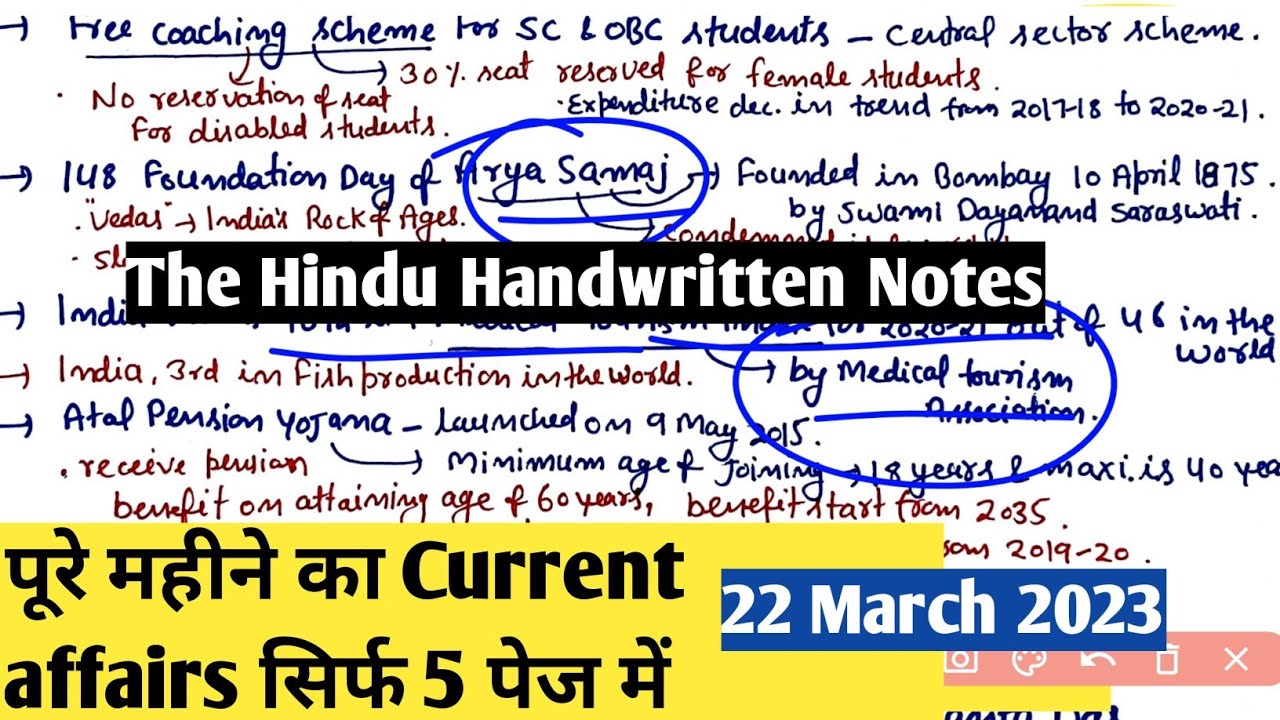 → Free coaching scheme for SC & OBC students – Central sector scheme.
→ 30% seat reserved for female students.
· No reservation of seat
for disabled students.
· Expenditure dec. in trend from 2017-18 to 2020-21.
→ 148 Foundation Day of Arya Samaj → Founded in Bombay 10 April 1875.
by Swami Dayanand Saraswati.
· "Vedas" → India's Rock of Ages.
The Hindu Handwritten Notes
→ India 2020-21 out of 46 in the
world
→ by Medical tourism
Association.
→ India, 3rd in Fish production in the world.
→ Atal Pension Yojana – Launched on 9 May 2015.
→ Minimum age of Joining → 18 years & maxi. is 40 yea
· receive pension
benefit on attaining age of 60 years, benefit start from 2035.
2019-20.
पूरे महीने का Current
affairs सिर्फ 5 पेज में
22 March 2023